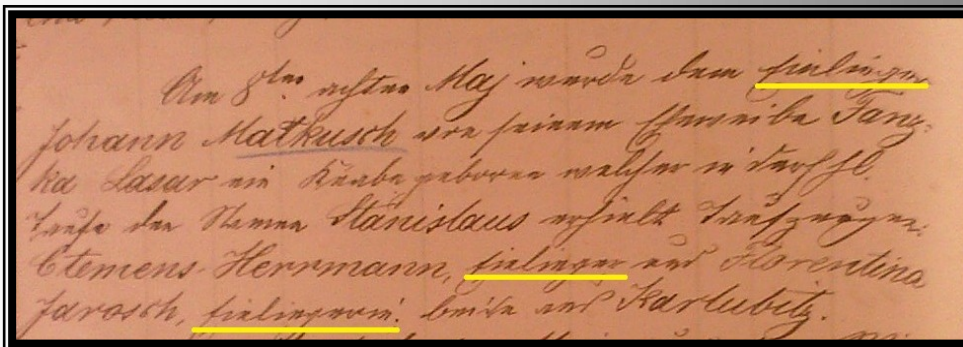 Am 8ten achten Maj wurde dem Einlieger
Johann Matkusch von seinem Eheweibe Franz-
ka Lasar ein Knabe geboren welcher in der hl.
Taufe den Namen Stanislaus erhielt Taufzeugen:
Clemens Herrmann, Einlieger und Florentina
Jarosch, Einliegerin. beide aus Karlubitz.